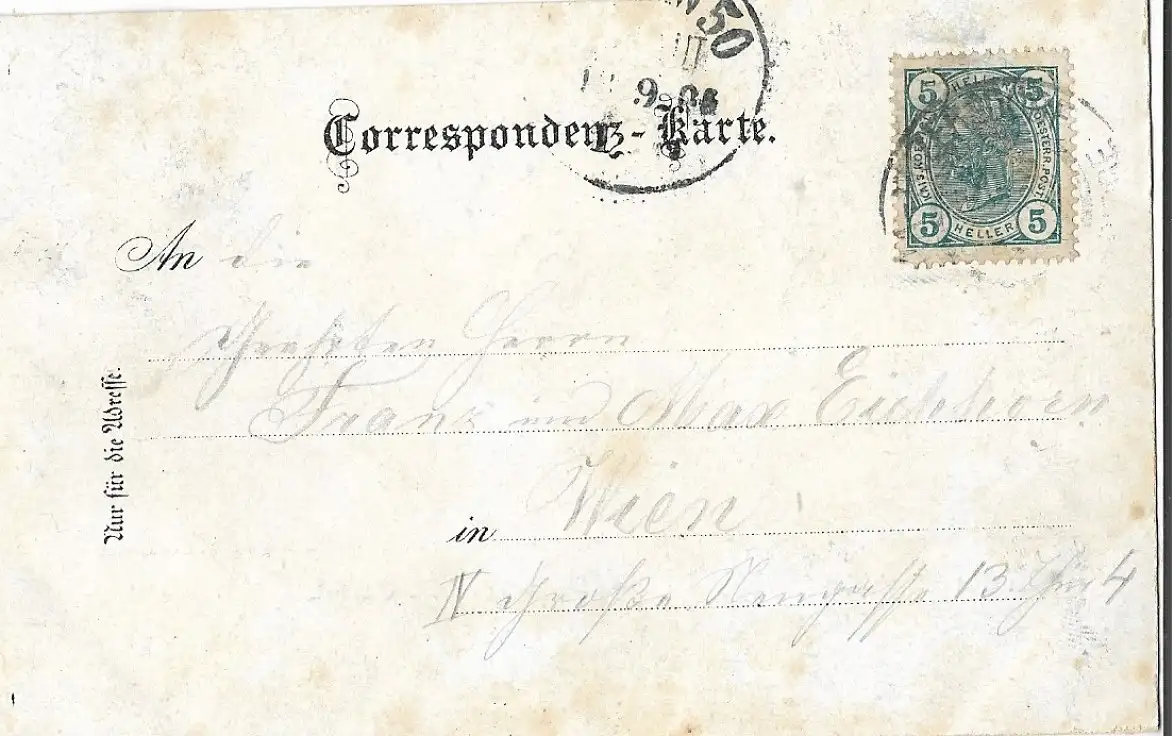 50
9 06
Correspondenz-Karte.
5 HELLER 5
KAIS. KOE OESTERR. POST
5 HELLER 5
An die
Geehrten Herrn
Franz und Max Eichhorn
Nur für die Adresse.
in Wien
IV Große Neugasse 13 Thür 4